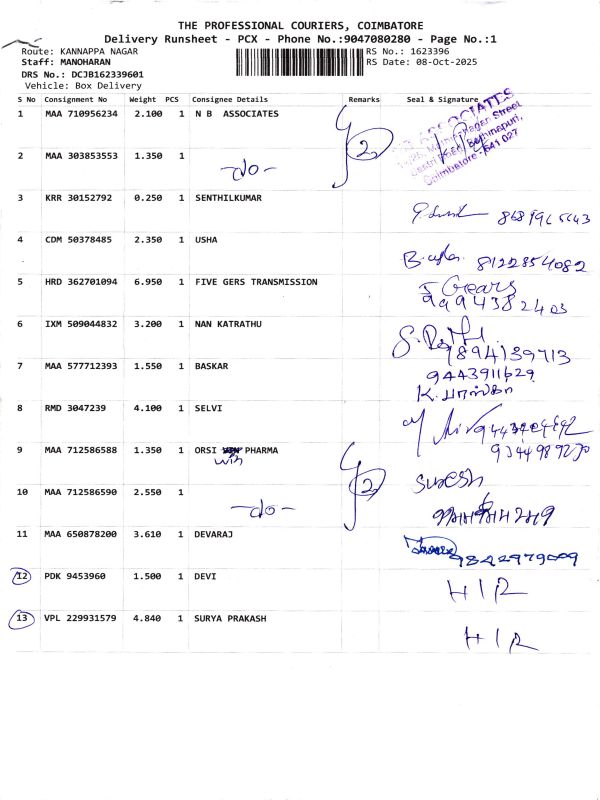 THE PROFESSIONAL COURIERS, COIMBATORE
Delivery Runsheet - PCX - Phone No.:9047080280 - Page No.:1
Route: KANNAPPA NAGAR RS No.: 1623396
Staff: MANOHARAN RS Date: 08-Oct-2025
DRS No.: DCJB162339601
Vehicle: Box Delivery
S No Consignment No Weight PCS Consignee Details Remarks Seal & Signature
1 MAA 710956234 2.100 1 N B ASSOCIATES
2 MAA 303853553 1.350 1 -do- 2
ASSOCIATES
Coimbatore - 641 027
3 KRR 30152792 0.250 1 SENTHILKUMAR
4 CDM 50378485 2.350 1 USHA 8122854082
5 HRD 362701094 6.950 1 FIVE GERS TRANSMISSION 5 Gears
9994382403
6 IXM 509044832 3.200 1 NAN KATRATHU
9894139713
7 MAA 577712393 1.550 1 BASKAR 9443911629
K. பாஸ்கர்
8 RMD 3047239 4.100 1 SELVI
9 MAA 712586588 1.350 1 ORSI PHARMA
win
10 MAA 712586590 2.550 1 -do- 2
11 MAA 650878200 3.610 1 DEVARAJ 9842979009
12 PDK 9453960 1.500 1 DEVI H I R
13 VPL 229931579 4.840 1 SURYA PRAKASH H I R